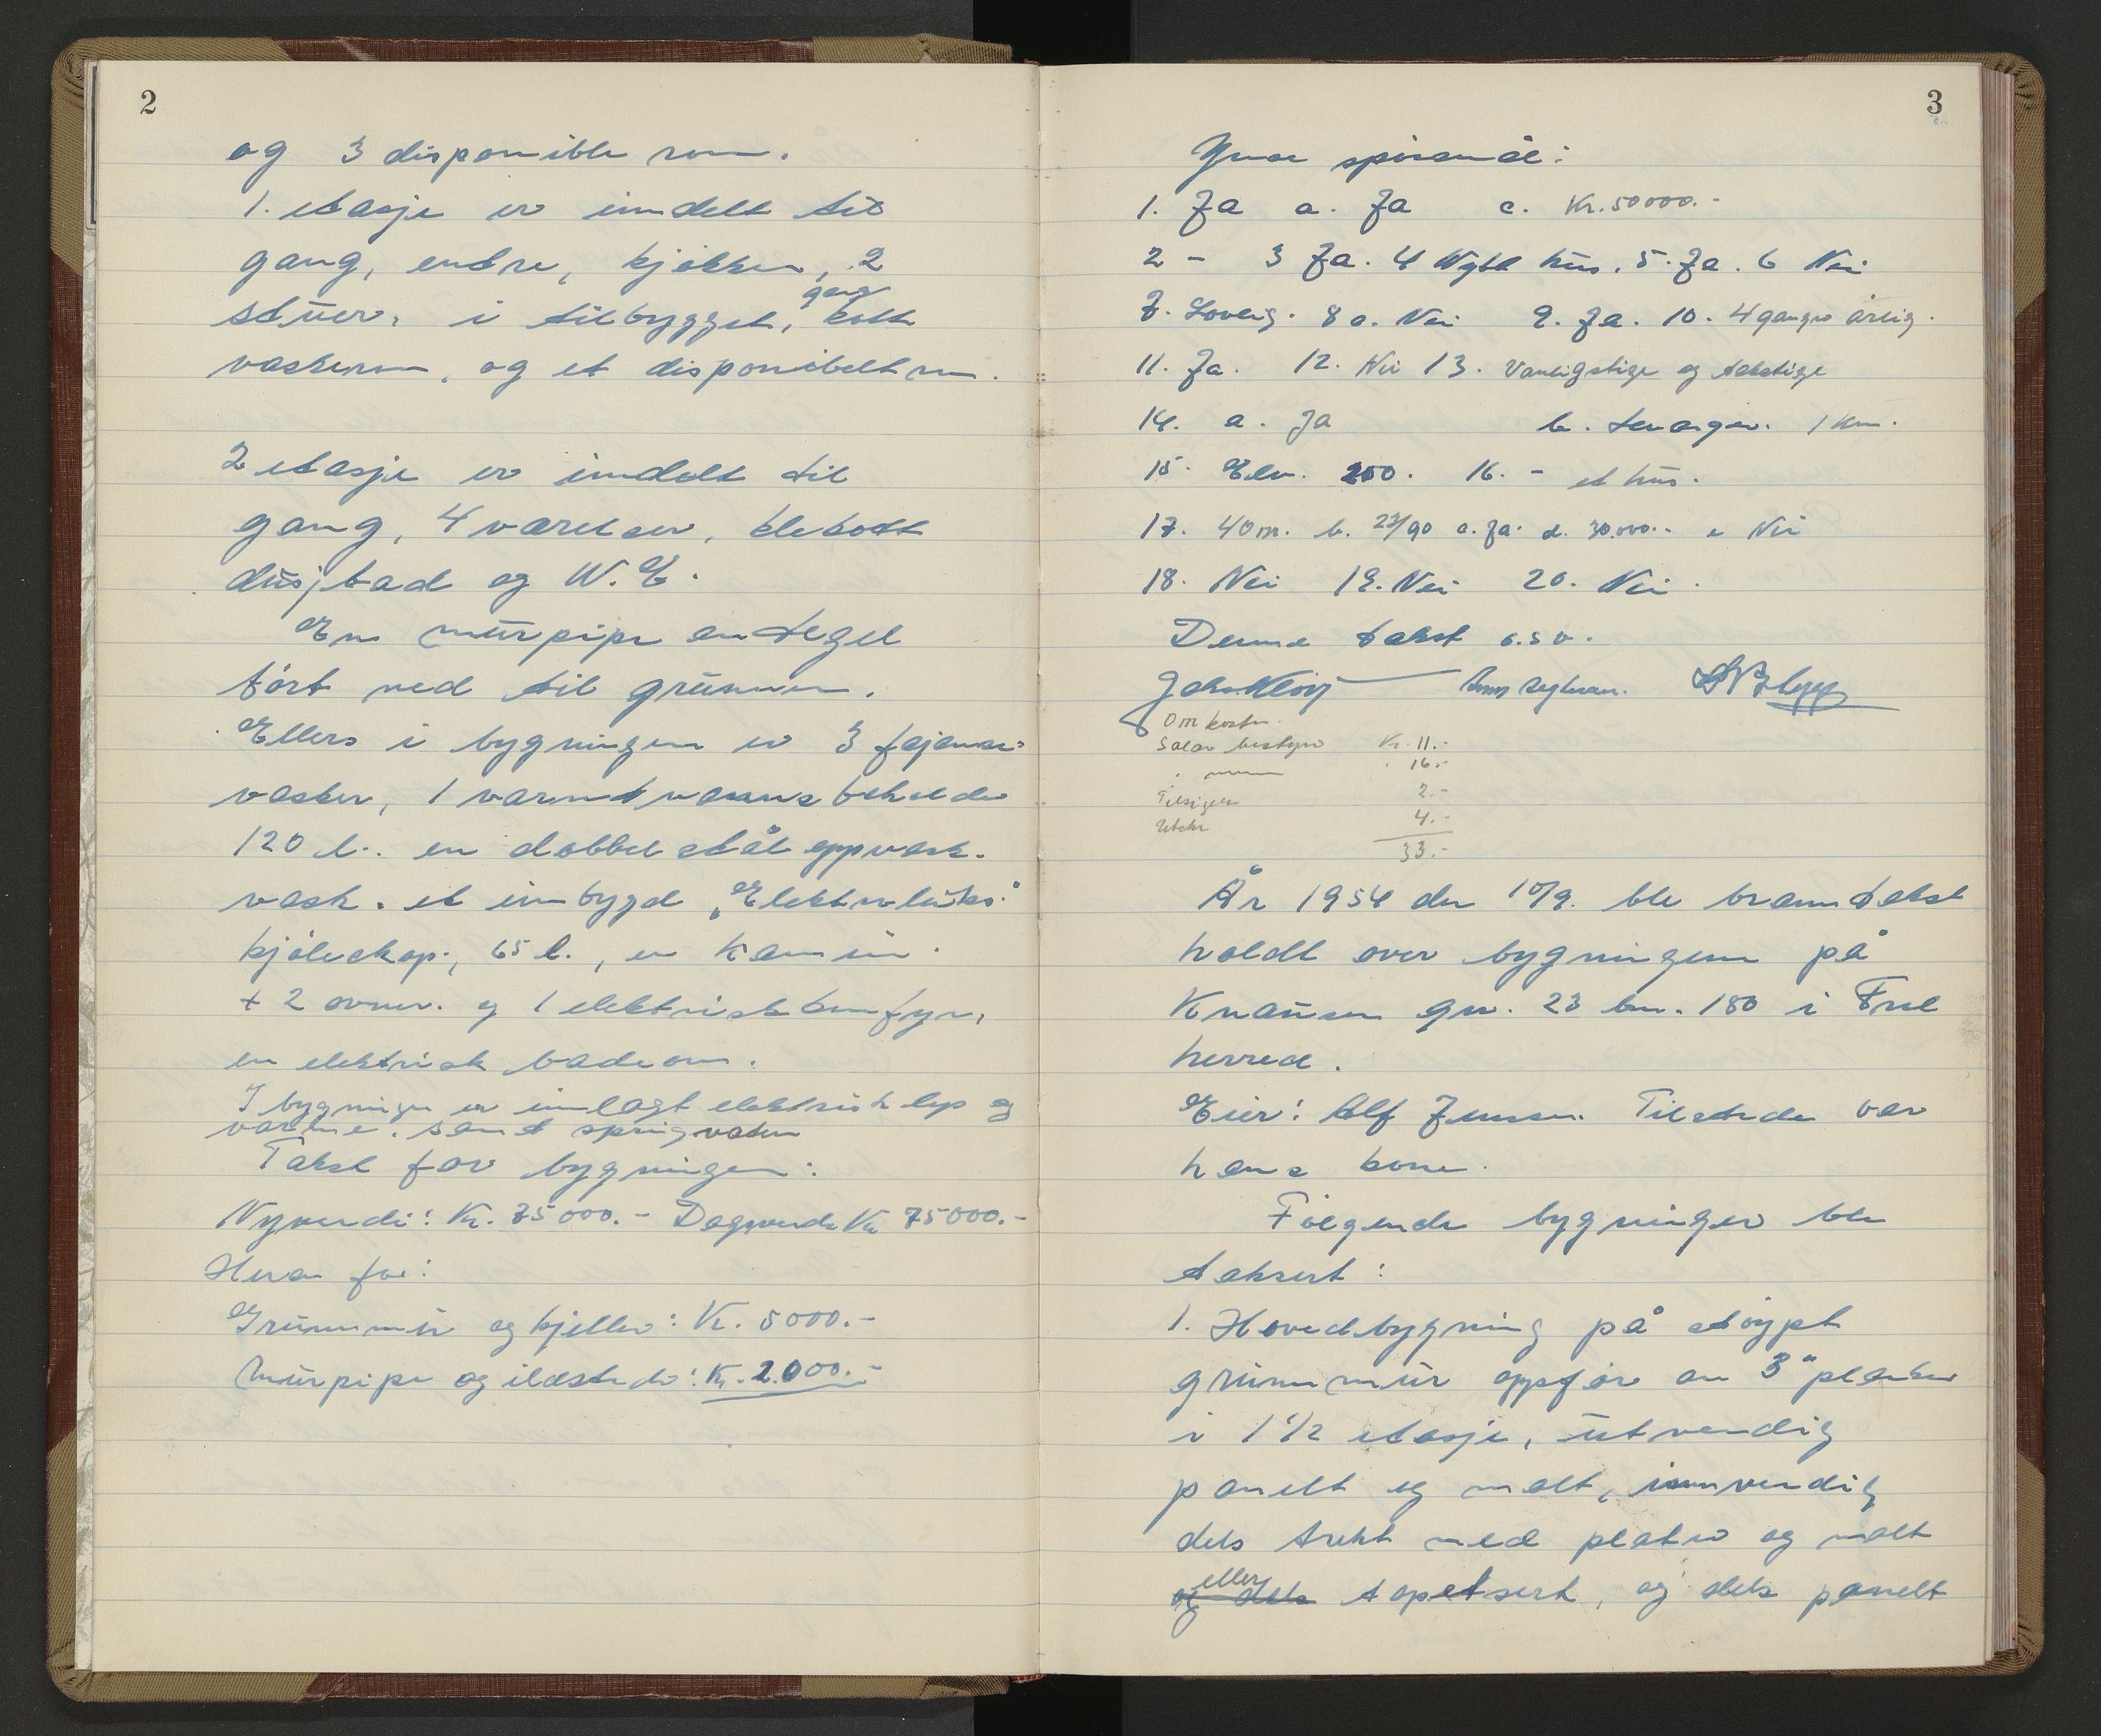 2
og 3 disponible rom.
1. etasje er inndelt til
gang, entre, kjökken, 2
stuer, i tilbygget, gang kott
vaskerom, og et disponibelt rom.
2 etasje er inndelt til
gang, 4 værelser, klekott
dusjbad og W.C.
En murpipe av tegel
fört ned til grunnen.
Ellers i bygningen er 3 fajanse
vasker, 1 varmtvannsbeholder
120 l. en dobbel stål oppvask-
vask. et innbygd "Elektroluks"
kjöleskap, 65 l., en kamin
+ 2 ovner. og 1 elektrisk komfyr,
en elektrisk badeovn.
I bygningen er innlagt elektrisk lys og
varme. samt springvatn
Takst for bygningen:
Nyverdi: Kr. 75000.- Dagverdi Kr 75000.-
Herav for:
Grunnmur og kjeller: Kr. 5000.-
Murpipe og ildsteder: Kr. 2.000.-
3
spörsmål:
1. Ja a. Ja c. Kr. 50000.-
2 - 3 Ja. 4 Nytt hus. 5. Ja. 6 Nei
7. Lovlig. 8 a. Nei 9. Ja. 10. 4 ganger årlig.
11. Ja. 12. Nei 13. Vanligstige og takstige
14. a. Ja b. Levanger. 1 km.
15. Elv. 250. 16. - et hus.
17. 40 m. b. 23/90 c. Ja. d. 30.000.- e Nei
18. Nei 19. Nei 20. Nei.
Denne takst o.s.v.
Omkostn.
Salær bestyrer Kr. 11.-
16.-
Tilsigelse 2.-
Utskr 4.-
33.-
År 1954 den 10/9. ble branntakst
holdt over bygningene på
Knausen gnr. 23 bnr. 180 i Frol
herred.
Eier: Alf Jenssen. Tilstede var
hans kone.
Fölgende bygninger ble
taksert:
1. Hovedbygning på stöypt
grunnmur oppför av 3" planker
i 1 1/2 etasje, utvendig
panelt og malt, innvendig
dels trekt med plater og malt
og dels eller tapetsert, og dels panelt